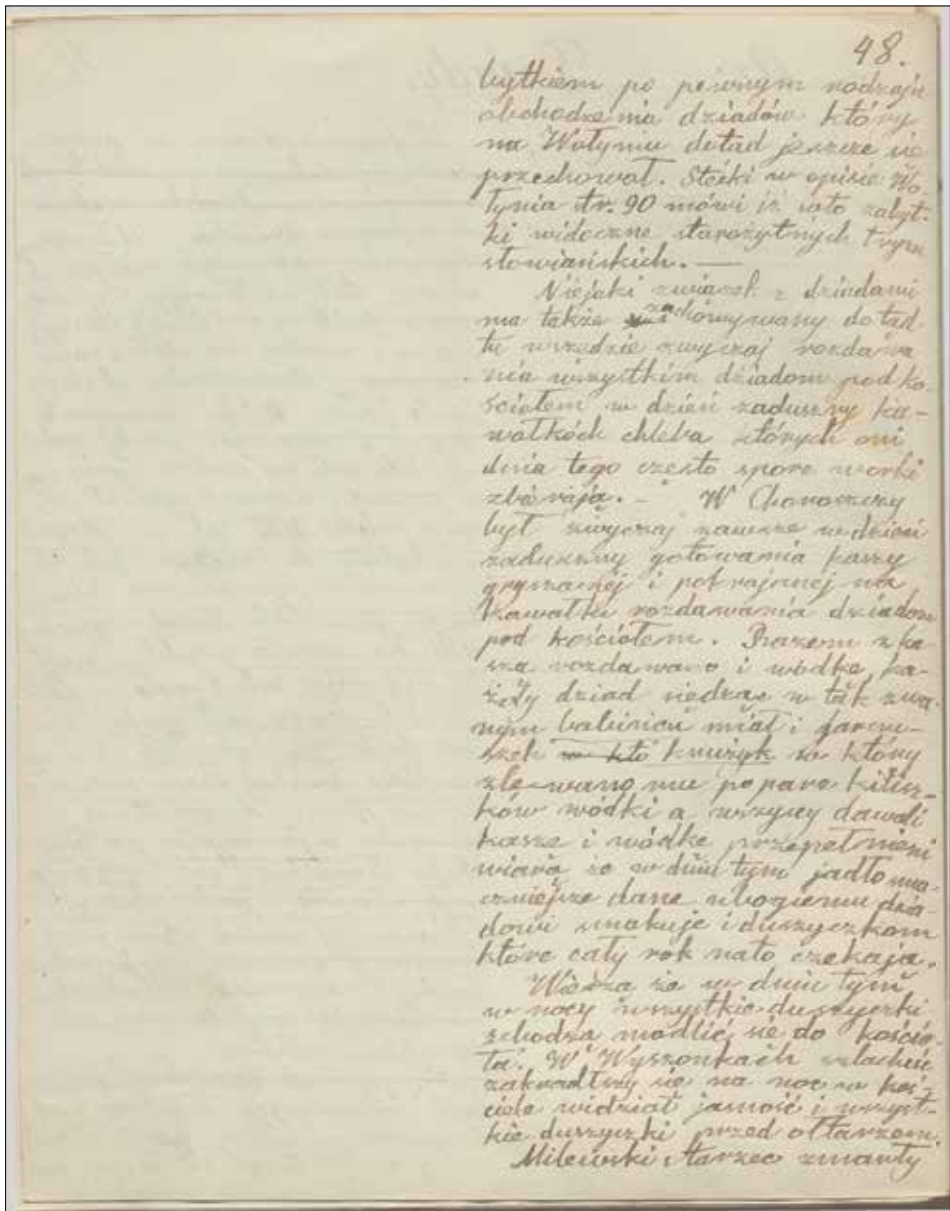 48.
bytkiem po pewnym rodzaju
obchodzenia dziadów który
na Wołyniu dotąd jeszcze się
przechował. Stecki w opisie Wo-
łynia str. 90 mówi iż sąto zabyt-
ki widoczne starożytnych tryzn
słowiańskich. —
Niejaki związek z dziadami
ma także zachowywany dotąd
tu wszędzie zwyczaj rozdawa
nia wszystkim dziadom pod ko-
ściołem w dzień zaduszny ka-
wałków chleba których oni
dnia tego często spore worki
zbierają. — W Choroszczy
był zwyczaj zawsze w dzień
zaduszny gotowania kaszy
gryczanej i pokrajanej na
kawałki rozdawania dziadom
pod kościołem. Razem z ka-
szą rozdawano i wódkę, ka-
żdy dziad siedząc w tak zwa-
nym babińcu miał i garnu-
szek w któ krużyk w który
zlewano mu po parę kielisz-
ków wódki a wszyscy dawali
kaszę i wódkę przepełnieni
wiarą że w dniu tym jadło sma-
czniejsze dane ubogiemu dzia-
dowi smakuje i duszyczkom
które cały rok nato czekają.
Wierzą że w dniu tym
w nocy wszystkie duszyczki
schodzą modlić się do kościo-
ła. W Wyszonkach szlachcic
zakradłszy się na noc w koś-
ciele widział jasność i wszyst-
kie duszyczki przed ołtarzem.
Milewski starzec zmarły